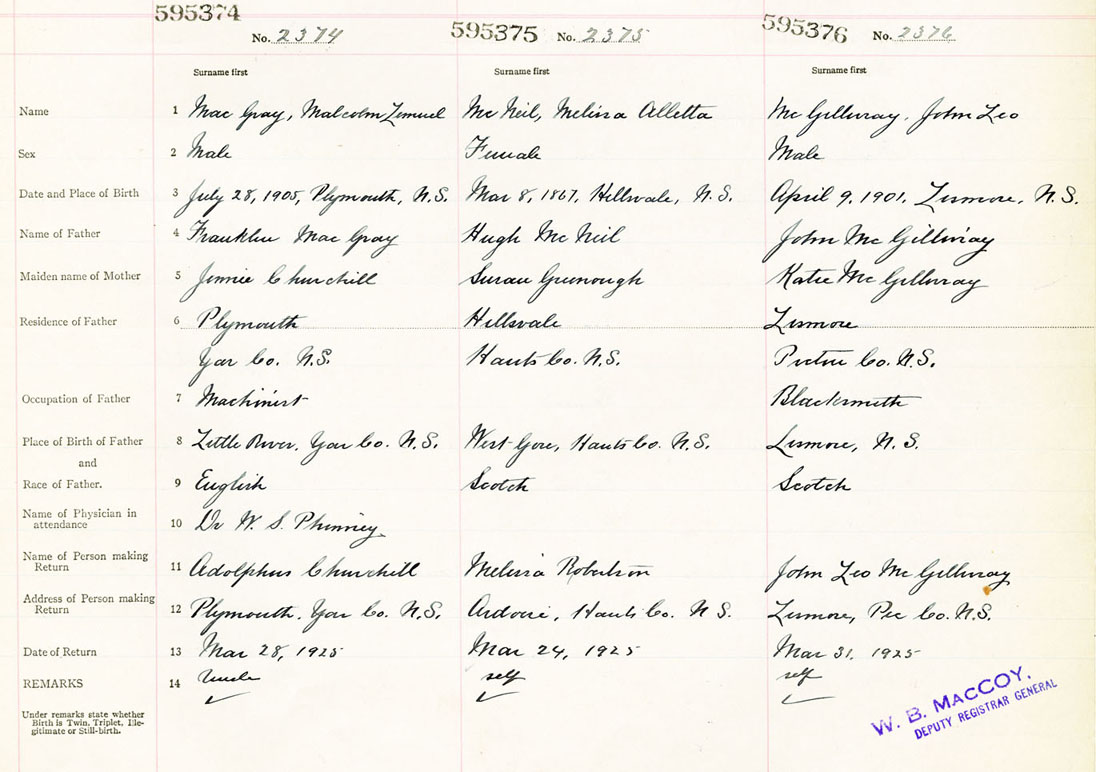 595374 595375 595376
No. 2374 No. 2375 No. 2376
Surname first Surname first Surname first
Name 1 Mac Gray, Malcolm Lemuel Mc Neil, Melissa Alletta Mc Gillivray, John Leo
Sex 2 Male Female Male
Date and Place of Birth 3 July 28, 1905, Plymouth, N.S. Mar 8, 1867, Hillsvale, N.S. April 9, 1901, Lismore, N.S.
Name of Father 4 Franklin Mac Gray Hugh Mc Neil John Mc Gillivray
Maiden name of Mother 5 Jennie Churchill Susan Greenough Katie Mc Gillivray
Residence of Father 6 Plymouth Hillsvale Lismore
Yar Co. N.S. Hants Co. N.S. Pictou Co. N.S.
Occupation of Father 7 Machinist Blacksmith
Place of Birth of Father 8 Little River, Yar Co. N.S. West Gore, Hants Co. N.S. Lismore, N.S.
and
Race of Father. 9 English Scotch Scotch
Name of Physician in
attendance 10 Dr W. S. Phinney
Name of Person making
Return 11 Adolphus Churchill Melissa Robertson John Leo Mc Gillivray
Address of Person making
Return 12 Plymouth, Yar Co. N.S. Ardoise, Hants Co. N S. Lismore, Pic Co. N.S.
Date of Return 13 Mar 28, 1925 Mar 24, 1925 Mar 31, 1925
REMARKS 14 Uncle self self
Under remarks state whether
Birth is Twin, Triplet, Ille-
gitimate or Still-birth.
W. B. MacCOY,
DEPUTY REGISTRAR GENERAL